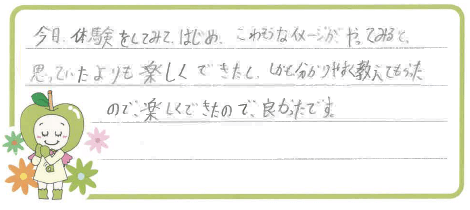 今日、体験をしてみて、はじめ、こわそうなイメージが、やってみると、
思っていたよりも楽しくできたし、しかも分かりやすく教えてもらった
ので、楽しくできたので、良かったです。